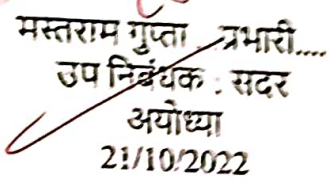 मस्तराम गुप्ता . प्रभारी....
उप निबंधक : सदर
अयोध्या
21/10/2022